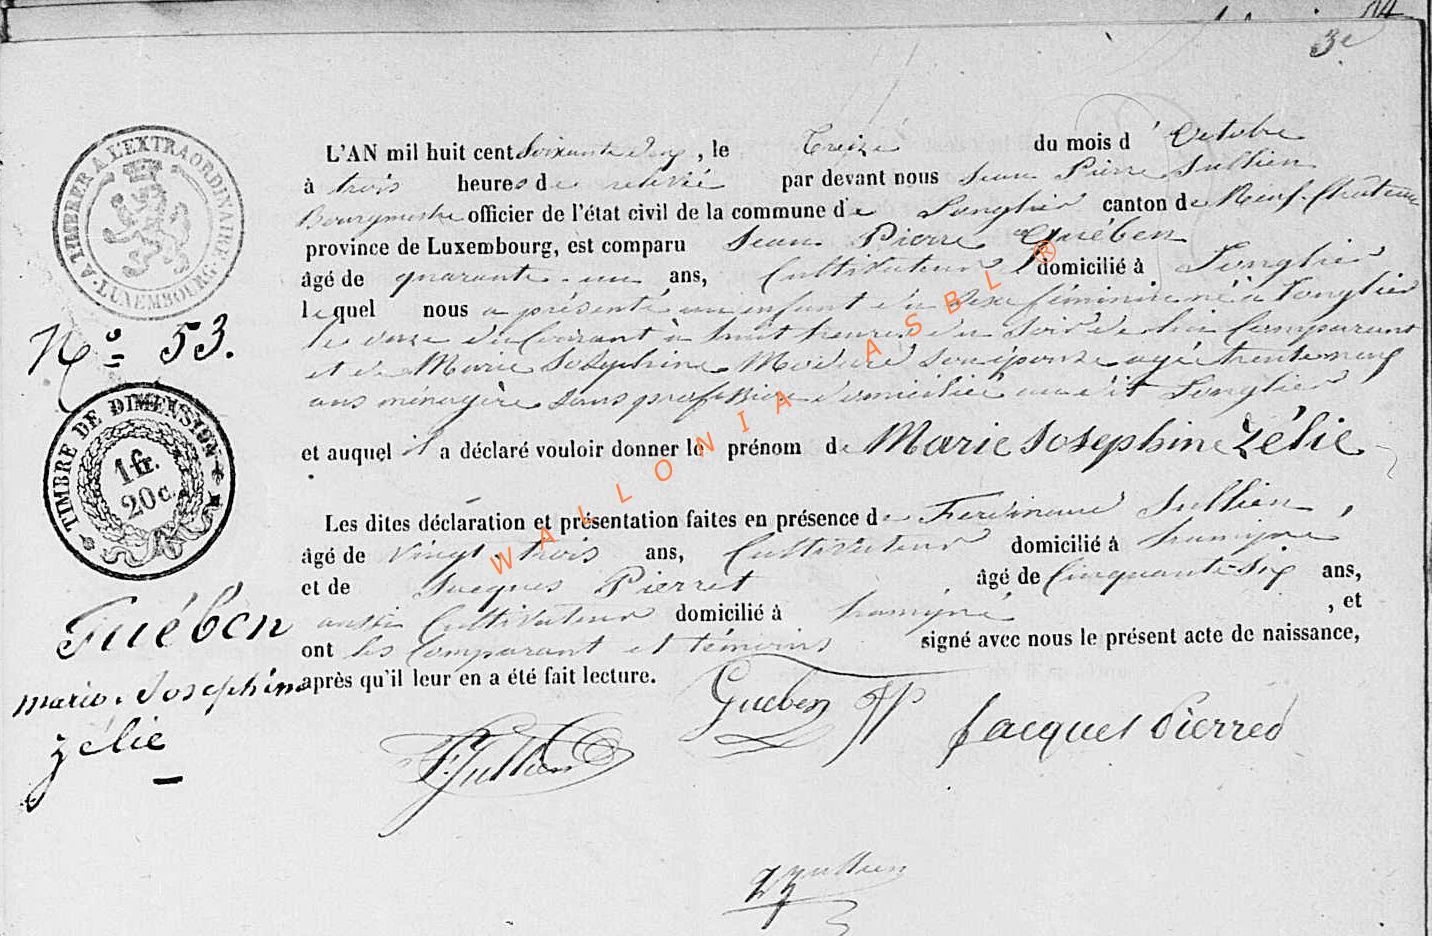 3e
A TIMBRER A L'EXTRAORDINAIRE
LUXEMBOURG
L'AN mil huit cent Soixante deux, le Treize du mois d'Octobre
à trois heures de relevée par devant nous Jean Pierre Jullien
Bourgmestre officier de l'état civil de la commune de Longlier canton de Neuf-Chateau
province de Luxembourg, est comparu Jean Pierre Guében
âgé de quarante-un ans, Cultivateur domicilié à Longlier
lequel nous a présenté un enfant du Sexe féminin né à Longlier
le onze du Courant à huit heures du Soir de lui Comparant
et de Marie Josephine Son épouse agée trente neuf
ans ménagère Sans profession domiciliée au dit Longlier
et auquel il a déclaré vouloir donner le prénom de Marie Josephine Zélie
Les dites déclaration et présentation faites en présence de Ferdinand Jullien,
âgé de Vingt-trois ans, Cultivateur domicilié à
et de Jacques Pierret âgé de Cinquante-Six ans,
aussi Cultivateur domicilié à , et
ont les Comparant et témoins signé avec nous le présent acte de naissance,
après qu'il leur en a été fait lecture.
No 53.
TIMBRE DE DIMENSION
1 fr.
20 c.
Guében
marie-Josephine
zélie
Gueben JP
Jacques Pierred
F. Jullien
Jullien
WALLONIA ASBL ®